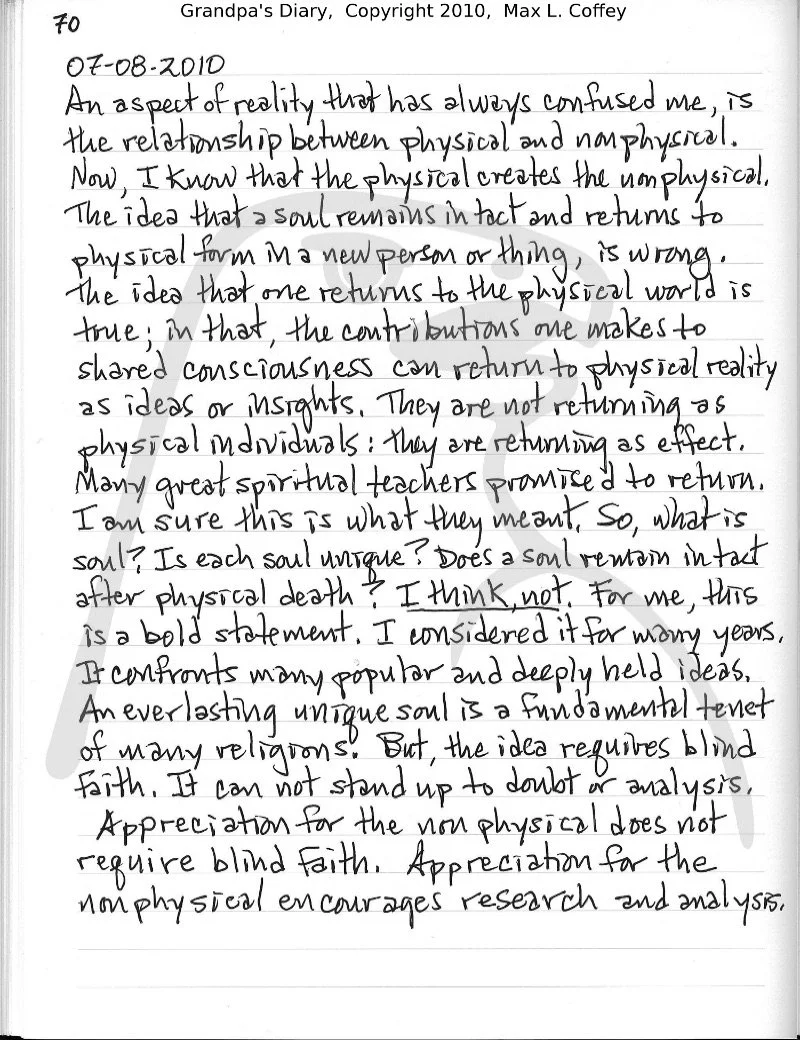 Grandpa's Diary, Copyright 2010, Max L. Coffey
70
07-08-2010
An aspect of reality that has always confused me, is
the relationship between physical and nonphysical.
Now, I know that the physical creates the nonphysical.
The idea that a soul remains intact and returns to
physical form in a new person or thing, is wrong.
The idea that one returns to the physical world is
true; in that, the contributions one makes to
shared consciousness can return to physical reality
as ideas or insights. They are not returning as
physical individuals: they are returning as effect.
Many great spiritual teachers promised to return.
I am sure this is what they meant. So, what is
soul? Is each soul unique? Does a soul remain intact
after physical death? I think, not. For me, this
is a bold statement. I considered it for many years.
It confronts many popular and deeply held ideas.
An everlasting unique soul is a fundamental tenet
of many religions. But, the idea requires blind
faith. It can not stand up to doubt or analysis.
Appreciation for the non physical does not
require blind faith. Appreciation for the
nonphysical encourages research and analysis.